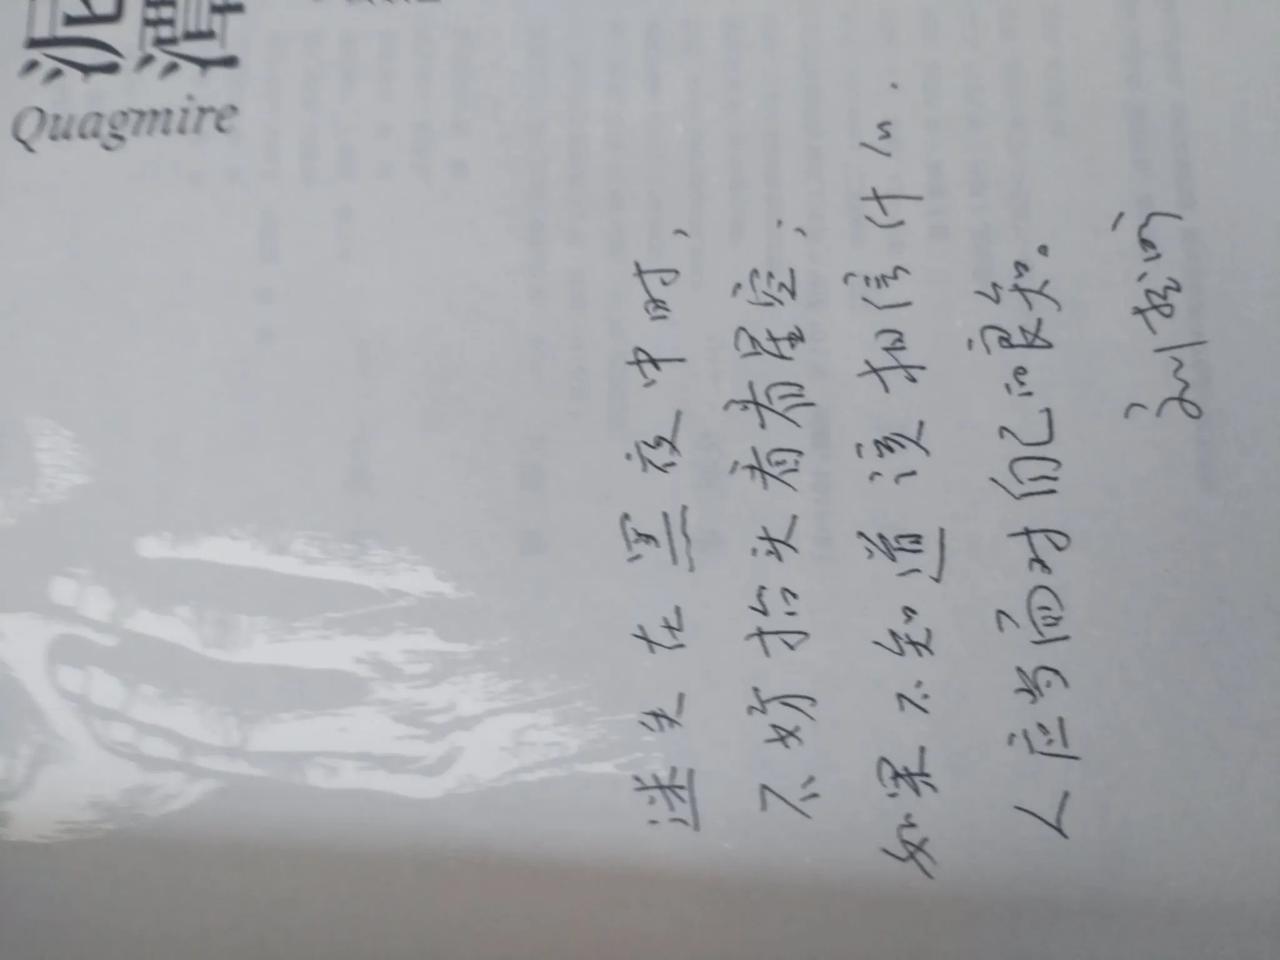 泥潭
Quagmire
迷失在黑夜中时，
不妨抬头看看星空，
如果不知道该相信什么.
人应当面对自己的良知。